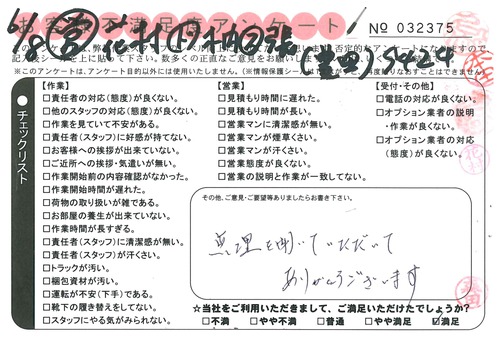 お客様不満足度アンケート
No 032375
記入後シールを上に貼って下さい。数多くの正直なご意見をお願いします
※このアンケートは、アンケート目的以外には使用しません。
チェックリスト
【作業】
□責任者の対応(態度)が良くない。
□他のスタッフの対応(態度)が良くない。
□作業を見ていて不安がある。
□責任者(スタッフ)に好感が持てない。
□お客様への挨拶が出来ていない。
□ご近所への挨拶・気遣いが無い。
□作業開始前の内容確認がなかった。
□作業開始時間が遅れた。
□荷物の取り扱いが雑である。
□お部屋の養生が出来ていない。
□作業時間が長すぎる。
□責任者(スタッフ)に清潔感が無い。
□責任者(スタッフ)が汗くさい。
□トラックが汚い。
□梱包資材が汚い。
□運転が不安(下手)である。
□靴下の履き替えをしてない。
□スタッフにやる気がみられない。
【営業】
□見積もり時間に遅れた。
□見積もり時間が長い。
□営業マンに清潔感が無い。
□営業マンが煙草くさい。
□営業マンが汗くさい。
□営業態度が良くない。
□営業の説明と作業が一致してない。
【受付・その他】
□電話の対応が良くない。
□オプション業者の説明
・作業が良くない。
□オプション業者の対応
(態度)が良くない。
その他、ご意見・ご要望等ありましたらお書き下さい。
無理を聞いていただいて
ありがとうございます
☆当社をご利用いただきまして、ご満足いただけたでしょうか?
□不満 □やや不満 □普通 □やや満足 ☑満足